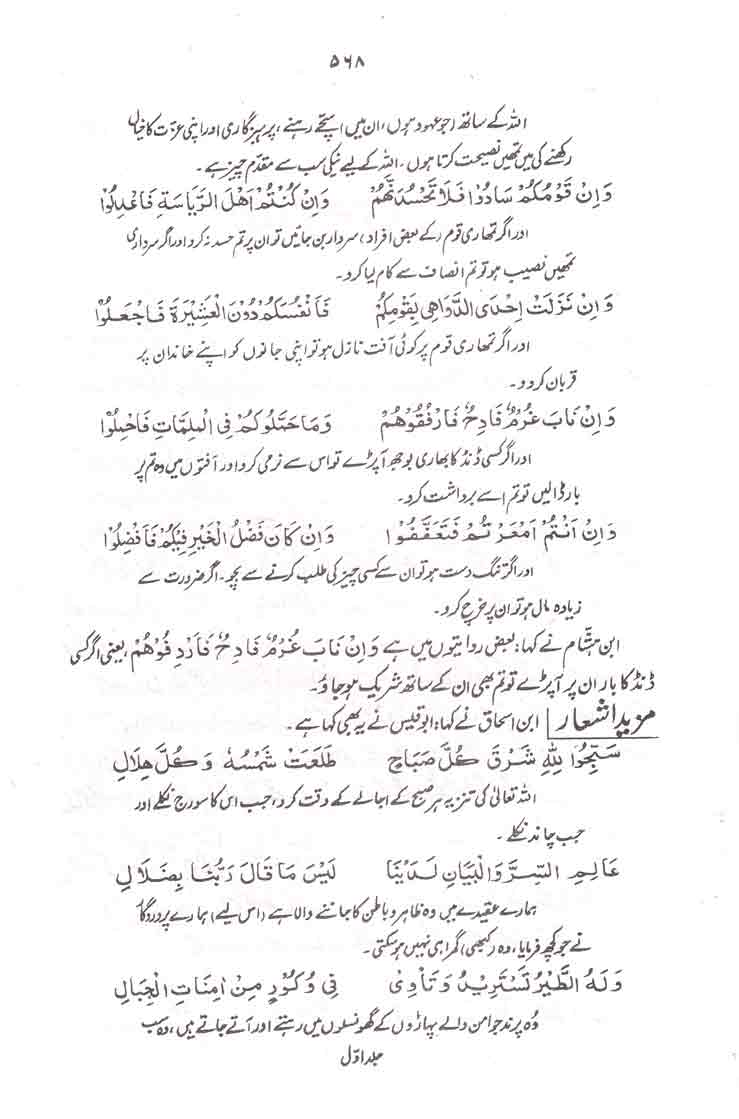 ۵۶۸
اللہ کے ساتھ (جو عہد ہوں، ان میں) سچے رہنے، پرہیزگاری اور اپنی عزت کا خیال
رکھنے کی میں تمھیں نصیحت کرتا ہوں۔ اللہ کے لیے نیکی سب سے مقدم چیز ہے۔
وَاِنْ قَوْمُكُمْ سَادُوْا فَلَا تَحْسُدُنَّهُمْ وَاِنْ كُنْتُمْ اَهْلَ الرِّيَاسَةِ فَاعْدِلُوْا
اور اگر تمھاری قوم (کے بعض افراد) سردار بن جائیں تو ان پر تم حسد نہ کرو اور اگر سرداری
تمھیں نصیب ہو تو تم انصاف سے کام لیا کرو۔
وَاِنْ نَزَلَتْ اِحْدَى الدَّوَاهِيْ بِقَوْمِكُمْ فَاَنْفُسَكُمْ دُوْنَ الْعَشِيْرَةِ فَاجْعَلُوْا
اور اگر تمھاری قوم پر کوئی آفت نازل ہو تو اپنی جانوں کو اپنے خاندان پر
قربان کردو۔
وَاِنْ نَابَ غُرْمٌ فَادِحٌ فَارْفُقُوْهُمْ وَمَا حَمَّلُوْكُمْ فِي الْمُلِمَّاتِ فَاحْمِلُوْا
اور اگر کسی ڈنڈ کا بھاری بوجھ آپڑے تو اس سے نرمی کرو اور آفتوں میں وہ تم پر
بار ڈالیں تو تم اسے برداشت کرو۔
وَاِنْ اَنْتُمْ اَمْعَرْتُمْ فَتَعَفَّفُوْا وَاِنْ كَانَ فَضْلُ الْخَيْرِ فِيْكُمْ فَاَفْضِلُوْا
اور اگر تنگ دست ہو تو ان سے کسی چیز کی طلب کرنے سے بچو۔ اگر ضرورت سے
زیادہ مال ہو تو ان پر خرچ کرو۔
ابن ہشام نے کہا: بعض روایتوں میں ہے وَاِنْ نَابَ غُرْمٌ فَادِحٌ فَارْدِفُوْهُمْ، یعنی اگر کسی
ڈنڈ کا بار ان پر آپڑے تو تم بھی ان کے ساتھ شریک ہوجاؤ۔
مزید اشعار ابن اسحاق نے کہا: ابوقیس نے یہ بھی کہا ہے۔
سَبِّحُوْا لِلّٰهِ شَرْقَ كُلِّ صَبَاحٍ طَلَعَتْ شَمْسُهٗ وَكُلِّ هِلَالِ
اللہ تعالیٰ کی تنزیہ ہر صبح کے اجالے کے وقت کرو، جب اس کا سورج نکلے اور
جب چاند نکلے۔
عَالِمِ السِّرِّ وَالْبَيَانِ لَدَيْنَا لَيْسَ مَا قَالَ رَبُّنَا بِضَلَالِ
ہمارے عقیدے میں وہ ظاہر و باطن کا جاننے والا ہے (اس لیے) ہمارے پروردگار
نے جو کچھ فرمایا، وہ (کبھی) گمراہی نہیں ہوسکتی۔
وَلَهُ الطَّيْرُ تَسْتَرِيْدُ وَتَأْوِيْ فِيْ وُكُوْرٍ مِنْ اٰمِنَاتِ الْجِبَالِ
وہ پرند جو امن والے پہاڑوں کے گھونسلوں میں رہتے اور آتے جاتے ہیں، وہ سب
جلد اوّل